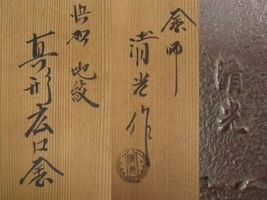 釜師
清光作
浜松地紋
真形広口釜
清光